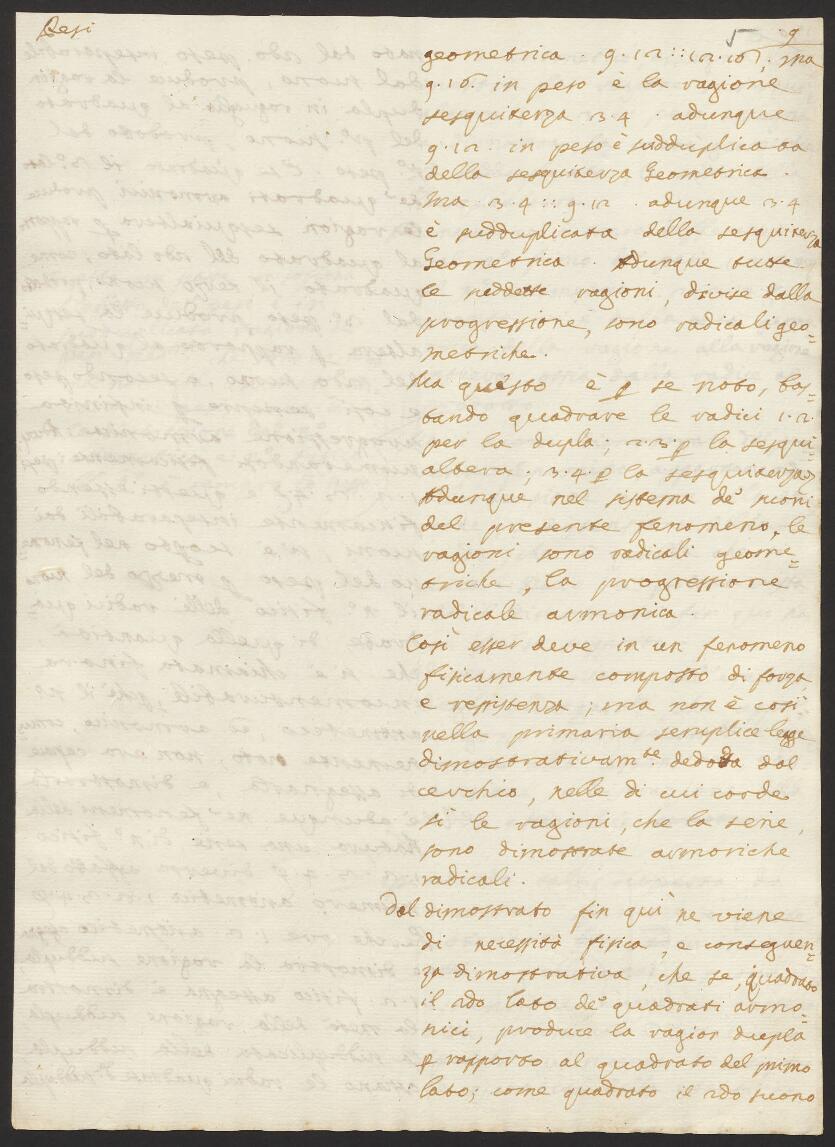 Pesi
√ 9
geometrica . 9. 12 :: 12. 16; ma
9. 16. in peso è la ragione
sesquiterza 3. 4 . adunque
9. 12. in peso è sudduplicata
della sesquiterza Geometrica .
Ma 3. 4 :: 9. 12 . adunque 3. 4
è sudduplicata della sesquiterza
Geometrica . Adunque tutte
le suddette ragioni, divise dalla
progressione, sono radicali geo=
metriche.
Ma questo è p se noto, bas=
tando quadrare le radici 1. 2.
per la dupla; 2. 3. p la sesqui=
altera; 3. 4. p la sesquiterza
Adunque nel sistema de' suoni
del presente fenomeno, le
ragioni sono radicali geome=
triche, la progressione
radicale armonica .
Così esser deve in un fenomeno
fisicamente composto di forza,
e resistenza; ma non è così
nella primaria semplice legge
dimostrativam.te dedotta dal
cerchio, nelle di cui corde
sì le ragioni, che la serie,
sono dimostrate armoniche
radicali.
Dal dimostrato fin quì ne viene
di necessità fisica, e conseguen=
za dimostrativa, che se, quadrato
il 2do lato de' quadrati armo=
nici, produce la ragion dupla
p rapporto al quadrato del primo
lato; come quadrato il 2do suono